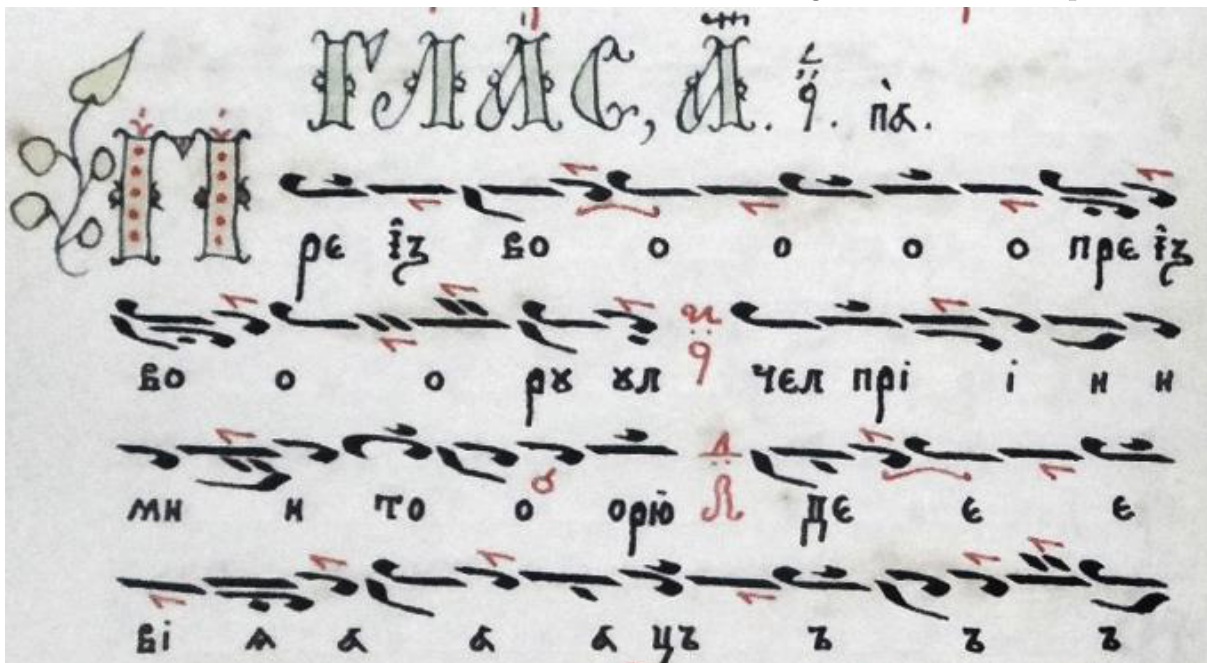 ГЛА́С, А҃. ҁ. па̀.
П ре їз во о о о о пре їз
во о о рꙋ ꙋл чел прі і и и
ми и то о орю̀ де е е
ві ѧ а а а цъ ъ ъ ъ